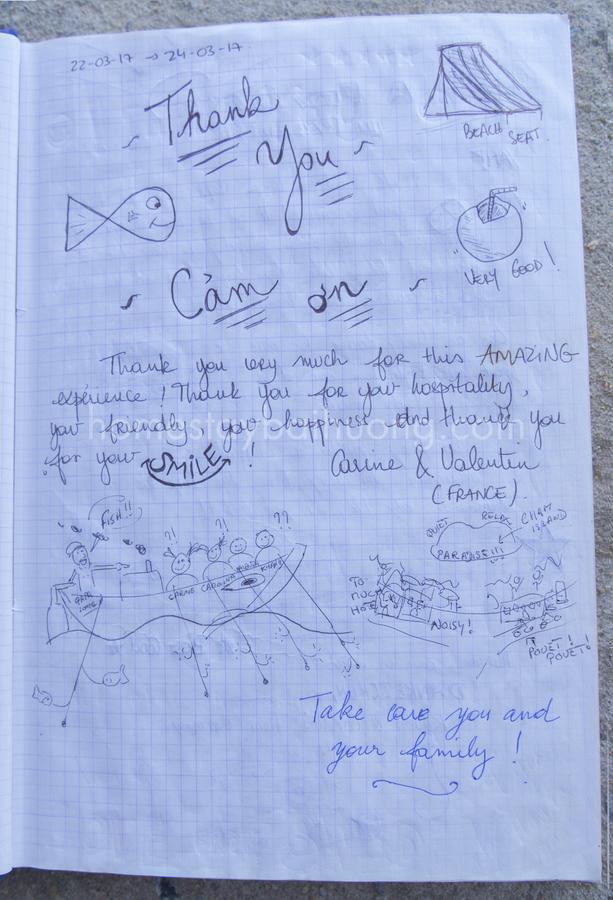 22-03-17 → 24-03-17
Thank
You
BEACH SEAT.
VERY GOOD!
Cảm ơn
Thank you very much for this AMAZING
expérience! Thank you for your hospitality,
your friendly, your happiness and thank you
for your SMILE!
Carine & Valentin
(FRANCE).
homestaybaihuong.com
FISH!!
?!
??
??
QUIET
RELAX
CHAM
ISLAND
PARADISE!!!
CARINE
CAROLINA
TO
MUCH
HOTEL
NOISY!
POUET!
POUET!
Take care you and
your family!